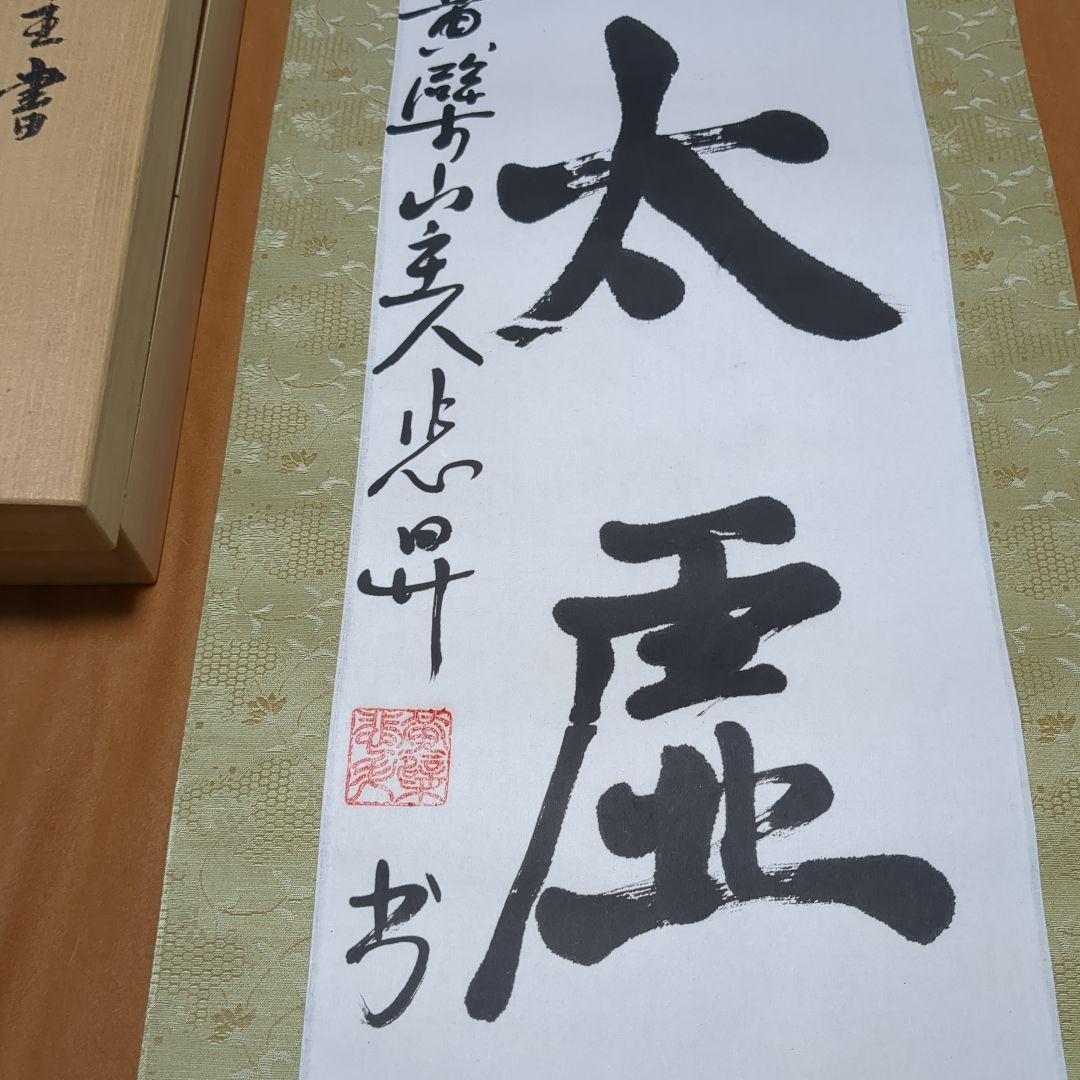 太虚
黄檗山主人悲昇
书
書